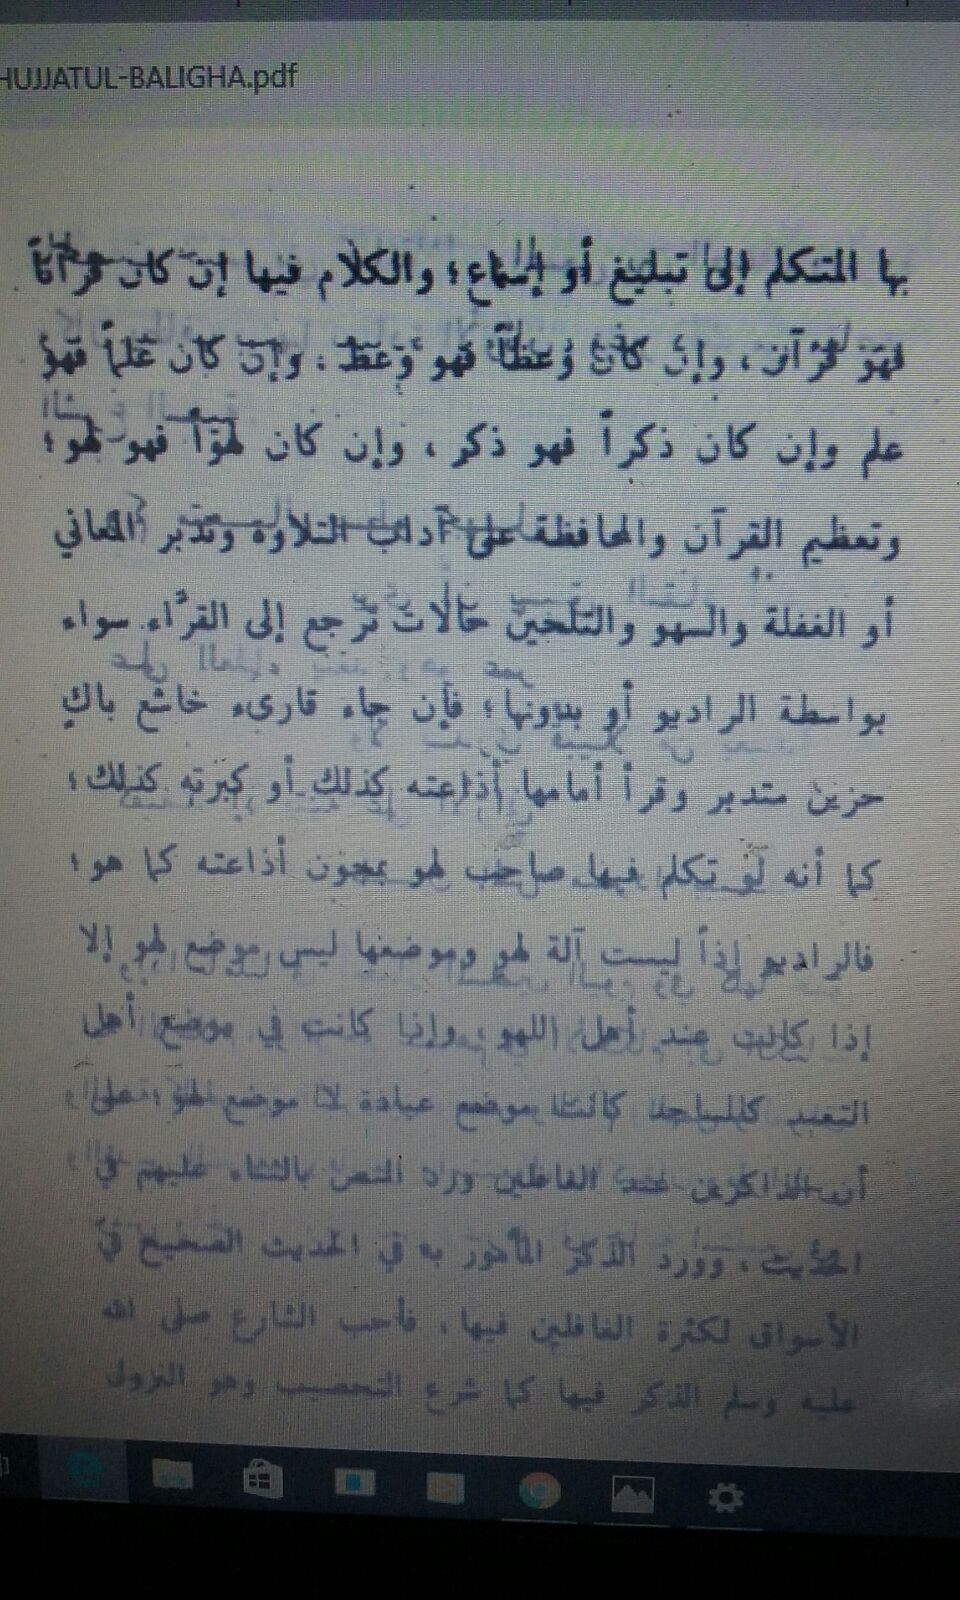 HUJJATUL-BALIGHA.pdf
بها المتكلم إلى تبليغ أو إسماع؛ والكلام فيها إن كان قرآناً
فهو قرآن، وإن كان وعظاً فهو وعظ، وإن كان علماً فهو
علم وإن كان ذكراً فهو ذكر، وإن كان لهواً فهو لهو؛
وتعظيم القرآن والمحافظة على آداب التلاوة وتدبر المعاني
أو الغفلة والسهو والتلحين حالات ترجع إلى القرّاء سواء
بواسطة الراديو أو بدونها؛ فإن جاء قارىء خاشع باكٍ
حزين متدبر وقرأ أمامها أذاعته كذلك أو كبرته كذلك؛
كما أنه لو تكلم فيها صاحب لهو بمجون أذاعته كما هو؛
فالراديو إذاً ليست آلة لهو وموضعها ليس موضع لهو إلا
إذا كانت عند أهل اللهو، وإذا كانت في موضع أهل
التعبد كالمساجد كانت موضع عبادة لا موضع لهو، على
أن الذاكرين عند الغافلين ورد النص بالثناء عليهم في
الحديث، وورد الذكر المأمور به في الحديث الصحيح في
الأسواق لكثرة الغافلين فيها، فأحب الشارع صلى الله
عليه وسلم الذكر فيها كما شرع التحصيب وهو النزول